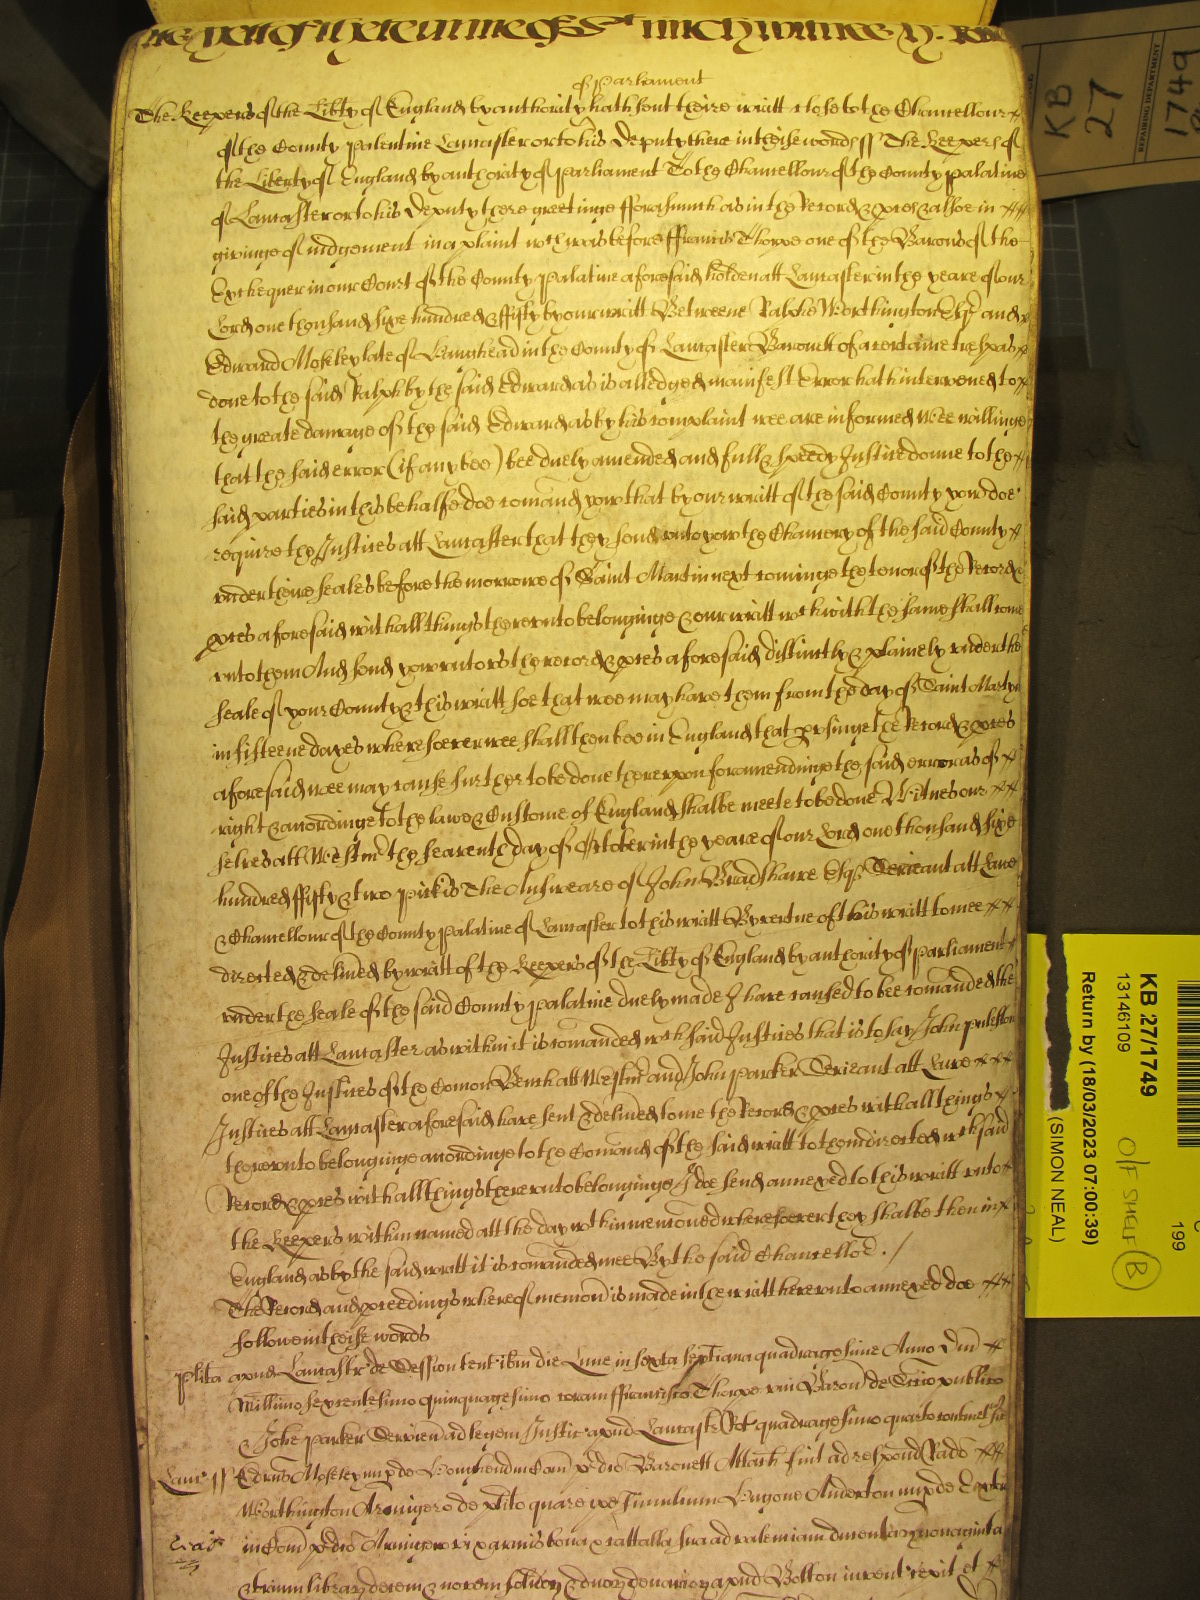 of Parliament
The Keepers of the Libty of England by authority hath sent theire writt close to the Chancellour
of the County Palentine Lancaster or to his Deputy there in theise words ss The Keepers of
the Liberty of England by authority of Parliament To the Chancellour of the County Palatine
of Lancaster or to his Deputy there greetinge fforasmuch as in the Record & pces & alsoe in
givinge of iudgement in a plaint wch was before ffrancis Thorpe one of the Barons of the
Exchequer in our Court of the County Palatine aforesaid holden att Lancaster in the yeare of our
Lord one thousand sixe hundred & ffifty by our writt Betweene Ralphe Worthington Esqr and
Edward Moseley late of in the County of Lancaster Baronett of a certaine trespas
done to the said Ralph by the said Edward as is alledged manifest Error hath intervened to
the greate damage of the said Edward as by his complaint wee are informed Wee willinge
that the said error (if any bee) bee duely amended and full & speedy Justice donne to the
said parties in this behalfe doe comand yow that by our writt of the said County yow doe
require the Justices att Lancaster that they send unto yow the Chancery of the said County
under theire seales before the morrowe of Saint Martin next cominge the tenor of the Record &
pces aforesaid with all things thereunto belonginge & our writt wch with the same shall come
unto them And send yow unto us the record & pces aforesaid distinctly & plainely under the
seale of your County & this writt soe that wee may have them from the day of Saint Martyn
in fifteene dayes wheresoever wee shall then bee in England that pusinge the Record & pces
aforesaid wee may cause further to be done thereupon for amendinge the said error as of
right & accordinge to the lawe & Custome of England shalbe meete to be done Witnes our
selves att Westmr the seaventh day of October in the yeare of our Lord one thousand sixe
hundred ffifty & two The Answeare of John Bradshawe Esqr Serieant att Lawe
& Chancellour of the County Palatine of Lancaster to this writt By vertue of this writt to mee
directed & delived by writt of the Keepers of the Libty of England by authority of Parliament
under the seale of the said County Palatine duely made I have caused to bee comanded the
Justices att Lancaster as within it is comanded wch said Justices that is to say John Puleston
one of the Justices of the Comon Bench att Westmr and John Parker Serieant att Lawe
Justices att Lancaster aforesaid have sent & delived to me the Record & pces with all things
thereunto belonginge accordinge to the Comand of the said writt to them directed wch said
Record & pces with all things thereunto belonginge I doe send annexed to this writt unto
the Keepers within named att the day wthin menconed wheresoever they shalbe then in
England as by the said writt it is comanded mee By the said Chancellor. /
The Record and pceedings whereof mencon is made in the writt hereunto annexed doe
followe in theise words
Plita apud Lancastr de Session tent ibm die Lune in sexta septiana quadragesime Anno Dni
Millimo sexcentesimo quinquagesimo coram ffrancisco Thorpe un Baron de Sccio publico
& Johe Parker Servien ad legem Justic apud Lancastr Rot quadragesimo quarto
Lanc ss Edrus Moseley nup de in Com pdco Baronett Attach fuit ad respond Rado
Worthington Armigero de plito quare ipe simul cum Hugone Anderton nup de Euxton
in Com pdco Armigero vi & armis bona & catalla sua ad valenciam ducentar nonaginta
& trium librar decem & novem solidor & duor denarior apud Bolton invent cepit et
KB
27
1749
REPAIRING DEPARTMENT
KB 27/1749
13146109
Return by (18/03/2023 07:00:39)
(SIMON NEAL)
O/F SHELF
B
199